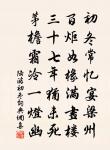 初冬常忆宴梁州
百炬如椽满画楼
三十七年犹未死
茅檐霜冷一灯幽
陆游初冬词典調集